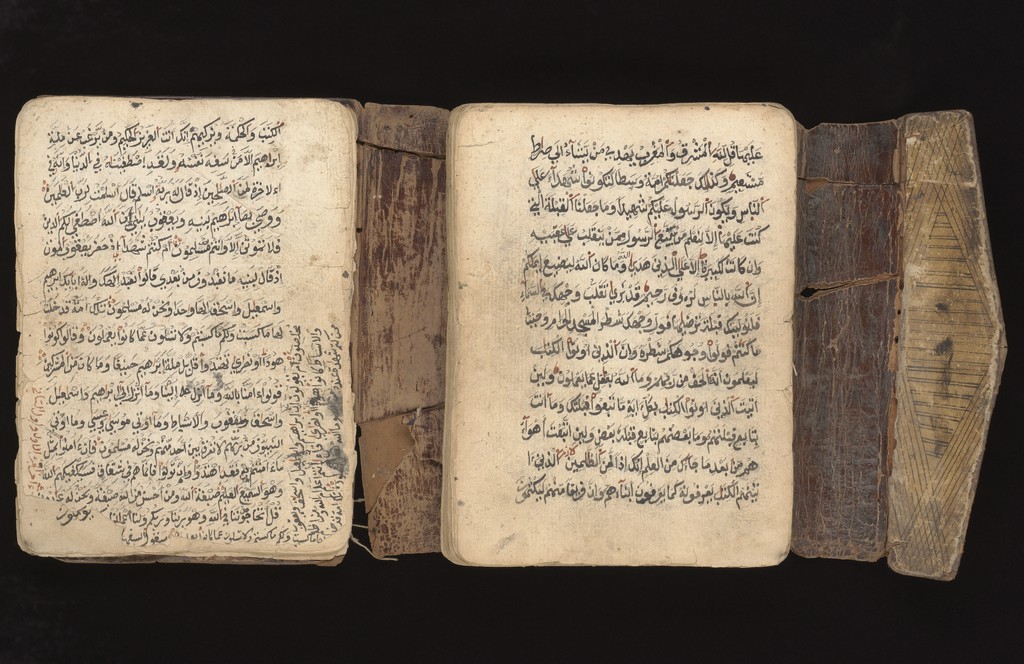 الكتب والحكمة ويزكيهم انك انت العزيز الحكيم ومن يرغب عن ملة
ابراهيم الا من سفه نفسه ولقد اصطفيناه في الدنيا وانه في
الاخرة لمن الصلحين اذ قال له ربه اسلم قال اسلمت لرب العلمين
ووصى بها ابراهيم بنيه ويعقوب يبني ان الله اصطفى لكم الدين
فلا تموتن الا وانتم مسلمون ام كنتم شهداء اذ حضر يعقوب الموت
اذ قال لبنيه ما تعبدون من بعدي قالوا نعبد الهك واله ابائك ابرهيم
واسمعيل واسحق الها واحدا ونحن له مسلمون تلك امة قد خلت
لها ما كسبت ولكم ما كسبتم ولا تسئلون عما كانوا يعملون وقالوا كونوا
هودا او نصرى تهتدوا قل بل ملة ابرهيم حنيفا وما كان من المشركين
قولوا امنا بالله وما انزل الينا وما انزل الى ابرهيم واسمعيل
واسحق ويعقوب والاسباط وما اوتي موسى وعيسى وما اوتي
النبيون من ربهم لا نفرق بين احد منهم ونحن له مسلمون فان امنوا بمثل
ما امنتم به فقد اهتدوا وان تولوا فانما هم في شقاق فسيكفيكهم الله
وهو السميع العليم صبغة الله ومن احسن من الله صبغة ونحن له عا
قل اتحاجوننا في الله وهو ربنا وربكم ولنا اعملنا
ما كسبت ولكم ما كسبتم ولا تسئلون عما كانوا يعملون سيقول السفهاء
عليها قل لله المشرق والمغرب يهدي من يشاء الى صراط
مستقيم وكذلك جعلنكم امة وسطا لتكونوا شهداء على
الناس ويكون الرسول عليكم شهيدا وما جعلنا القبلة التي
كنت عليها الا لنعلم من يتبع الرسول ممن ينقلب على عقبيه
وان كانت لكبيرة الا على الذين هدى الله وما كان الله ليضيع ايمنكم
ان الله بالناس لرءوف رحيم قد نرى تقلب وجهك في السماء
فلنولينك قبلة ترضيها فول وجهك شطر المسجد الحرام وحيث
ما كنتم فولوا وجوهكم شطره وان الذين اوتوا الكتاب
ليعلمون انه الحق من ربهم وما الله بغفل عما يعملون ولين
اتيت الذين اوتوا الكتب بكل اية ما تبعوا قبلتك وما انت
بتابع قبلتهم وما بعضهم بتابع قبلة بعض ولين اتبعت اهوا
هم من بعد ما جاءك من العلم انك اذا لمن الظلمين الذين ا
تينهم الكتب يعرفونه كما يعرفون ابناءهم وان فريقا منهم ليكتمون